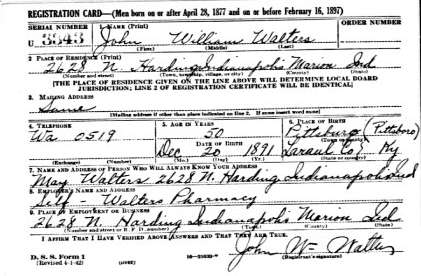 REGISTRATION CARD—(Men born on or after April 28, 1877 and on or before February 16, 1897)
SERIAL NUMBER 1. NAME (Print) ORDER NUMBER
U 3343 John William Walters
(First) (Middle) (Last)
2. PLACE OF RESIDENCE (Print)
2628 N. Harding Indianapolis Marion Ind
(Number and street) (Town, township, village, or city) (County) (State)
[THE PLACE OF RESIDENCE GIVEN ON THE LINE ABOVE WILL DETERMINE LOCAL BOARD
JURISDICTION; LINE 2 OF REGISTRATION CERTIFICATE WILL BE IDENTICAL]
3. MAILING ADDRESS
Same
[Mailing address if other than place indicated on line 2. If same insert word same]
4. TELEPHONE 5. AGE IN YEARS 6. PLACE OF BIRTH
Wa 0519 50 Pittsburg (Pittsboro)
DATE OF BIRTH (Town or county)
Dec 20 1891 Laraul Co. Ky
(Exchange) (Number) (Mo.) (Day) (Yr.) (State or country)
7. NAME AND ADDRESS OF PERSON WHO WILL ALWAYS KNOW YOUR ADDRESS
May Walters 2628 N. Harding Indianapolis Ind
8. EMPLOYER'S NAME AND ADDRESS
Self - Walters Pharmacy
9. PLACE OF EMPLOYMENT OR BUSINESS
2628 N. Harding Indianapolis Marion Ind.
(Number and street or R. F. D. number) (Town) (County) (State)
I AFFIRM THAT I HAVE VERIFIED ABOVE ANSWERS AND THAT THEY ARE TRUE.
D. S. S. Form 1 John Wm Walters
(Revised 4-1-42) (over) (Registrant's signature)